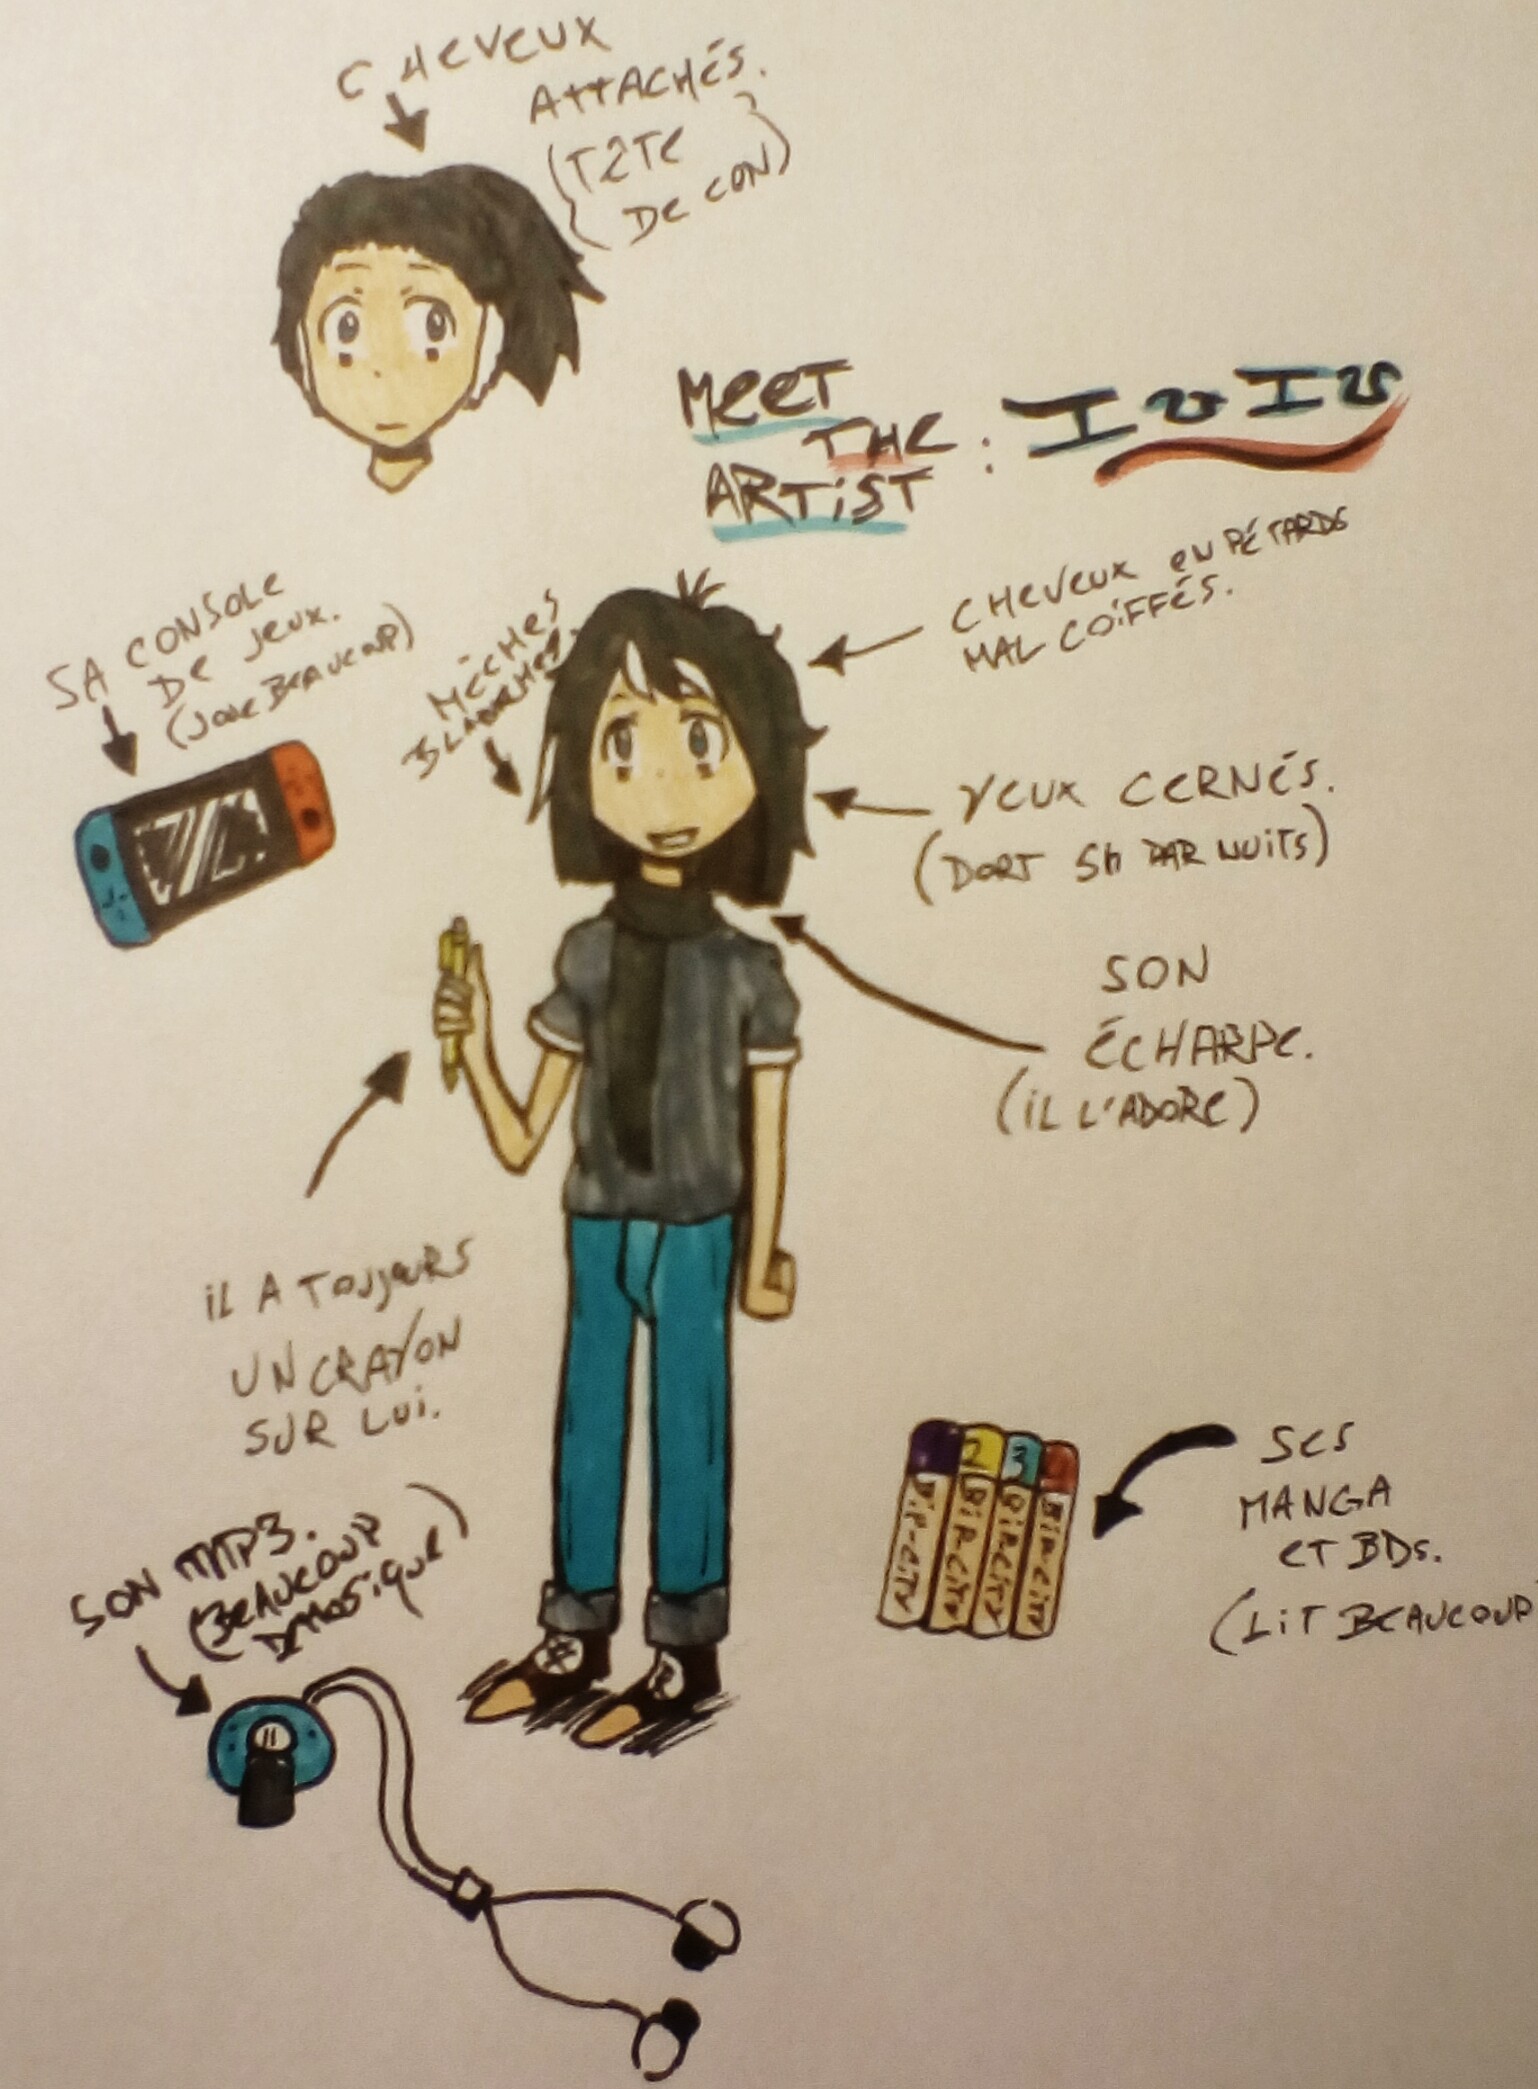 CHEVEUX
ATTACHÉS.
(TÊTE
DE CON)
MEET
THE
ARTIST : IvIv
CHEVEUX EN PÉTARDS
MAL COIFFÉS.
SA CONSOLE
DE JEUX.
(JOUE BEAUCOUP)
MÈCHES
BLANCHES.
YEUX CERNÉS.
(DORT 5h PAR NUITS)
SON
ÉCHARPE.
(IL L'ADORE)
IL A TOUJOURS
UN CRAYON
SUR LUI.
SES
MANGA
ET BDs.
(LIT BEAUCOUP
2
3
BIP-CITY
BIP-CITY
BIP-CITY
BIP-CITY
SON MP3.
(BEAUCOUP
D MUSIQUE)